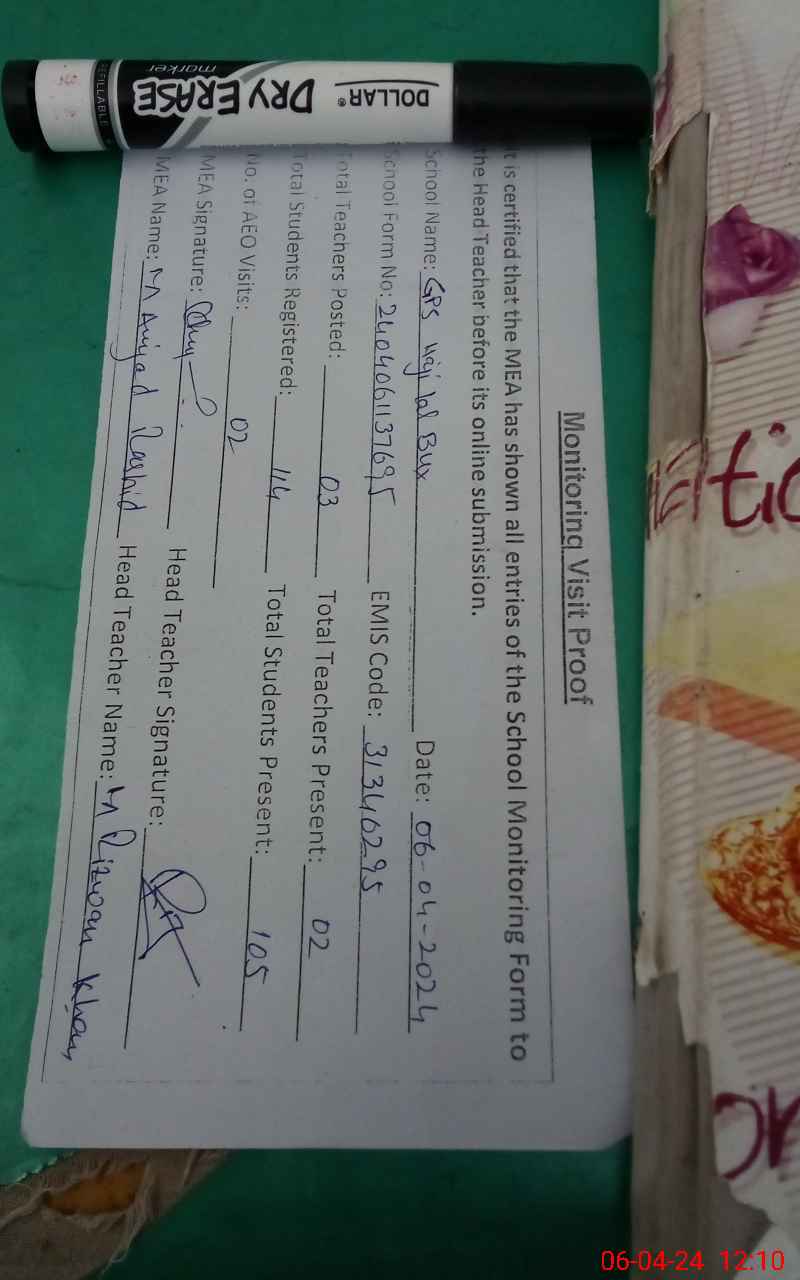 Monitoring Visit Proof
It is certified that the MEA has shown all entries of the School Monitoring Form to
the Head Teacher before its online submission.
School Name: GPS Haji lal Bux Date: 06-04-2024
School Form No: 2404061137695 EMIS Code: 31340295
Total Teachers Posted: 03 Total Teachers Present: 02
Total Students Registered: 114 Total Students Present: 105
No. of AEO Visits: 02
MEA Signature: Head Teacher Signature:
MEA Name: M Amjad Rashid Head Teacher Name: M Rizwan Khan
DOLLAR®
DRY ERASE
marker
REFILLABLE
06-04-24 12:10